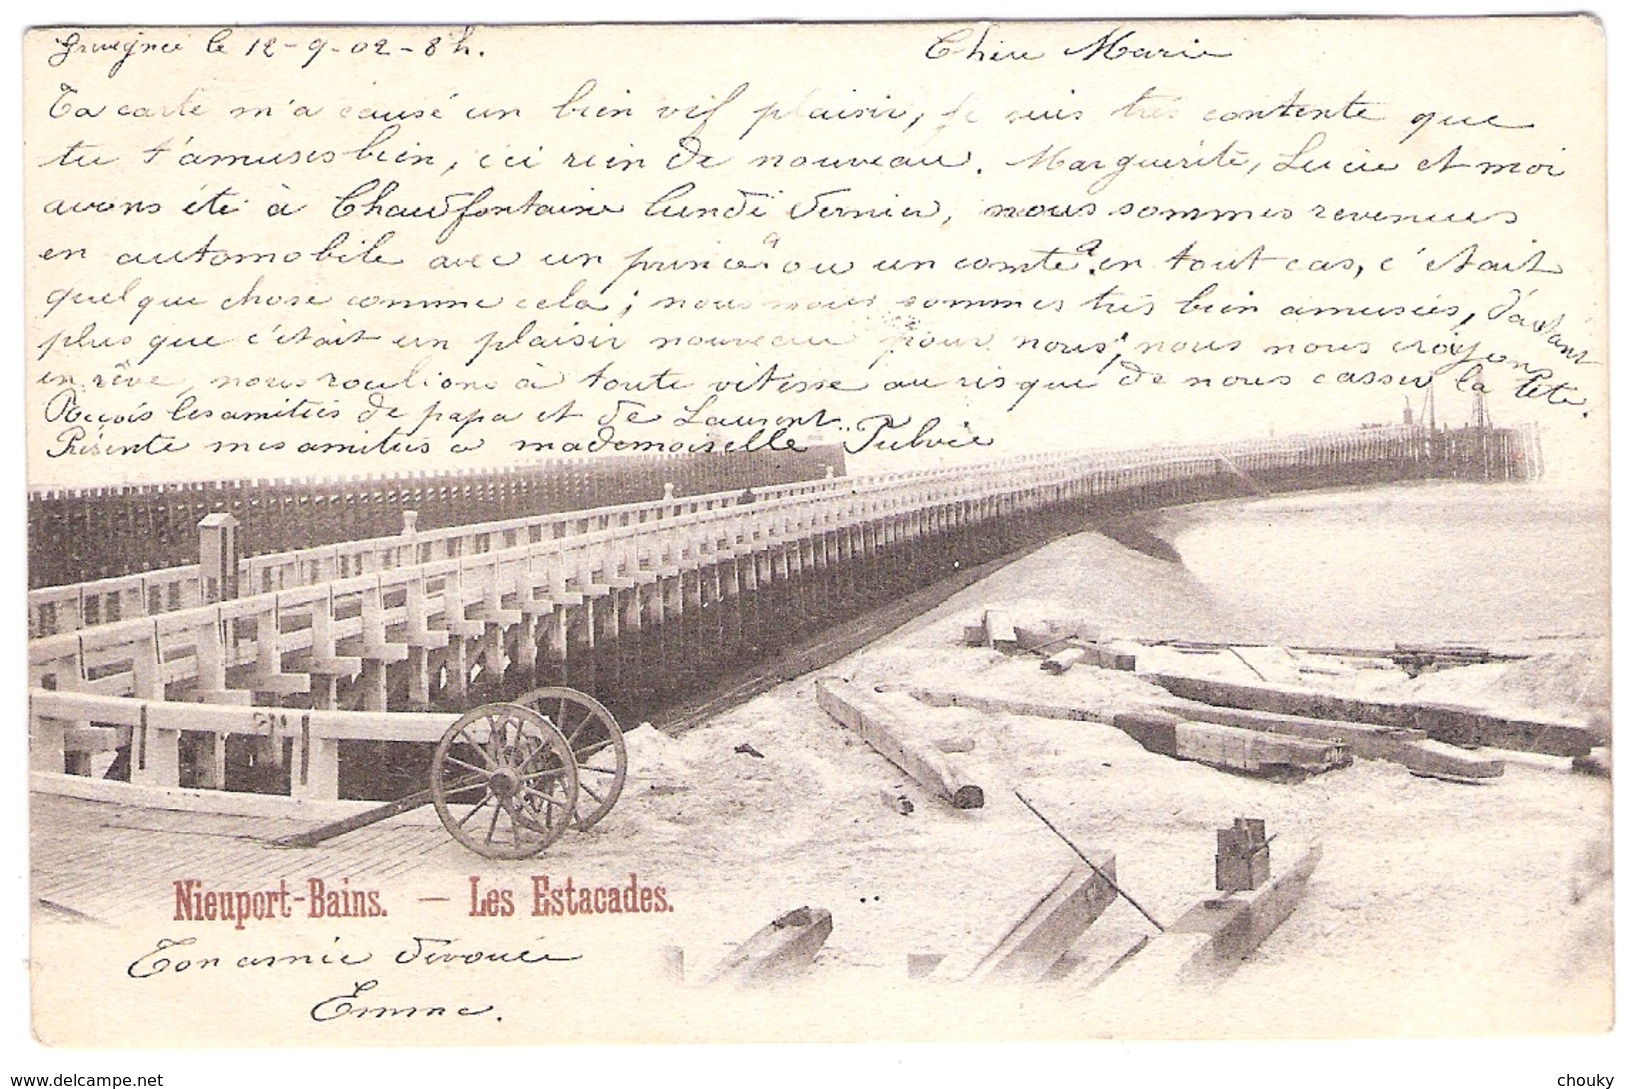 Grivegnée le 12-9-02-8h.
Chère Marie
Ta carte m'a causé un bien vif plaisir, je suis très contente que
tu t'amuses bien, ici rien de nouveau. Marguerite, Lucie et moi
avons été à Chaudfontaine lundi dernier, nous sommes revenues
en automobile avec un prince ou un comte en tout cas, c'était
quelque chose comme cela; nous nous sommes très bien amusées, d'autant
plus que c'était un plaisir nouveau pour nous, nous nous croyons
en rêve, nous roulions à toute vitesse au risque de nous casser la tête.
Reçois les amitiés de papa et de Laurent.
Présente mes amitiés à mademoiselle
Nieuport-Bains. — Les Estacades.
Ton amie dévouée
Emma.
www.delcampe.net
chouky